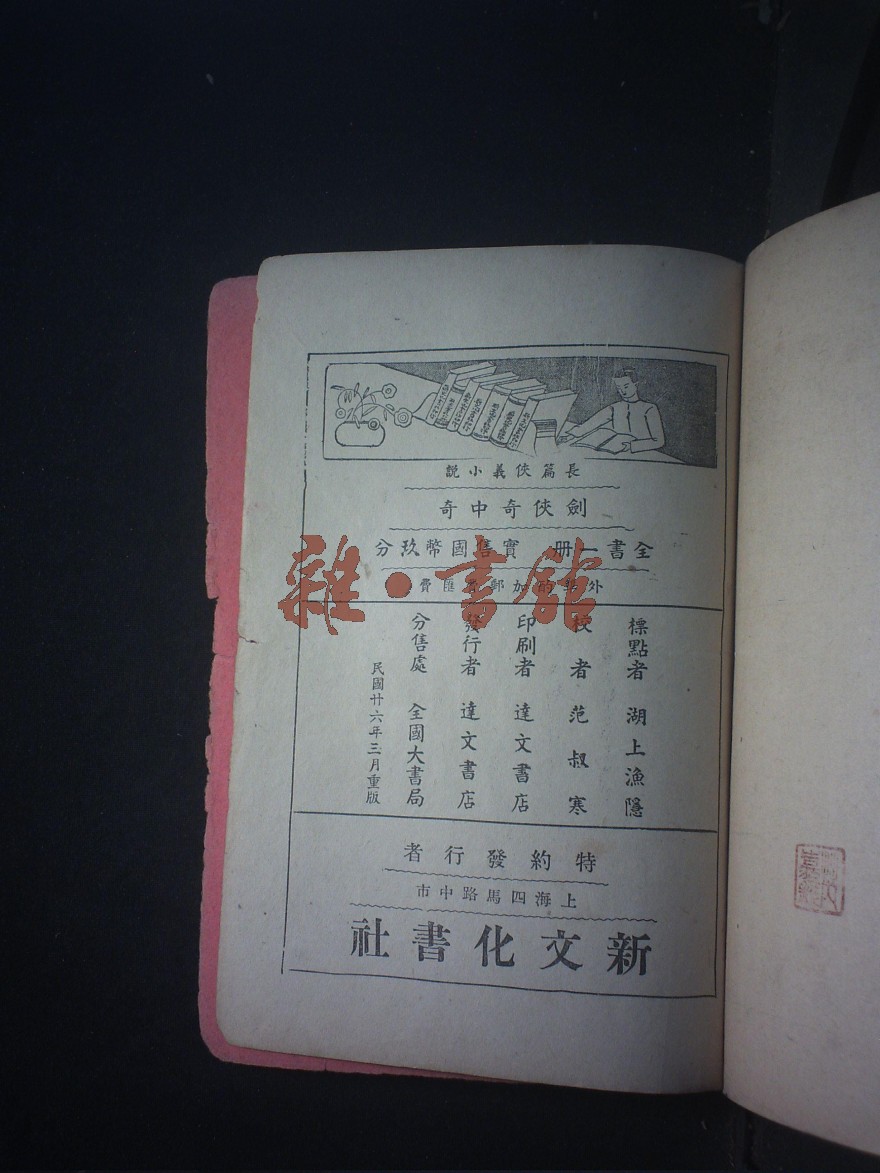 長篇俠義小說
劍俠奇中奇
全書一册 實售國幣玖分
外埠酌加郵費匯費
標點者 湖上漁隱
校者 范叔寒
印刷者 達文書店
發行者 達文書店
分售處 全國大書局
民國廿六年三月重版
特約發行者
上海四馬路中市
新文化書社
雜·書館